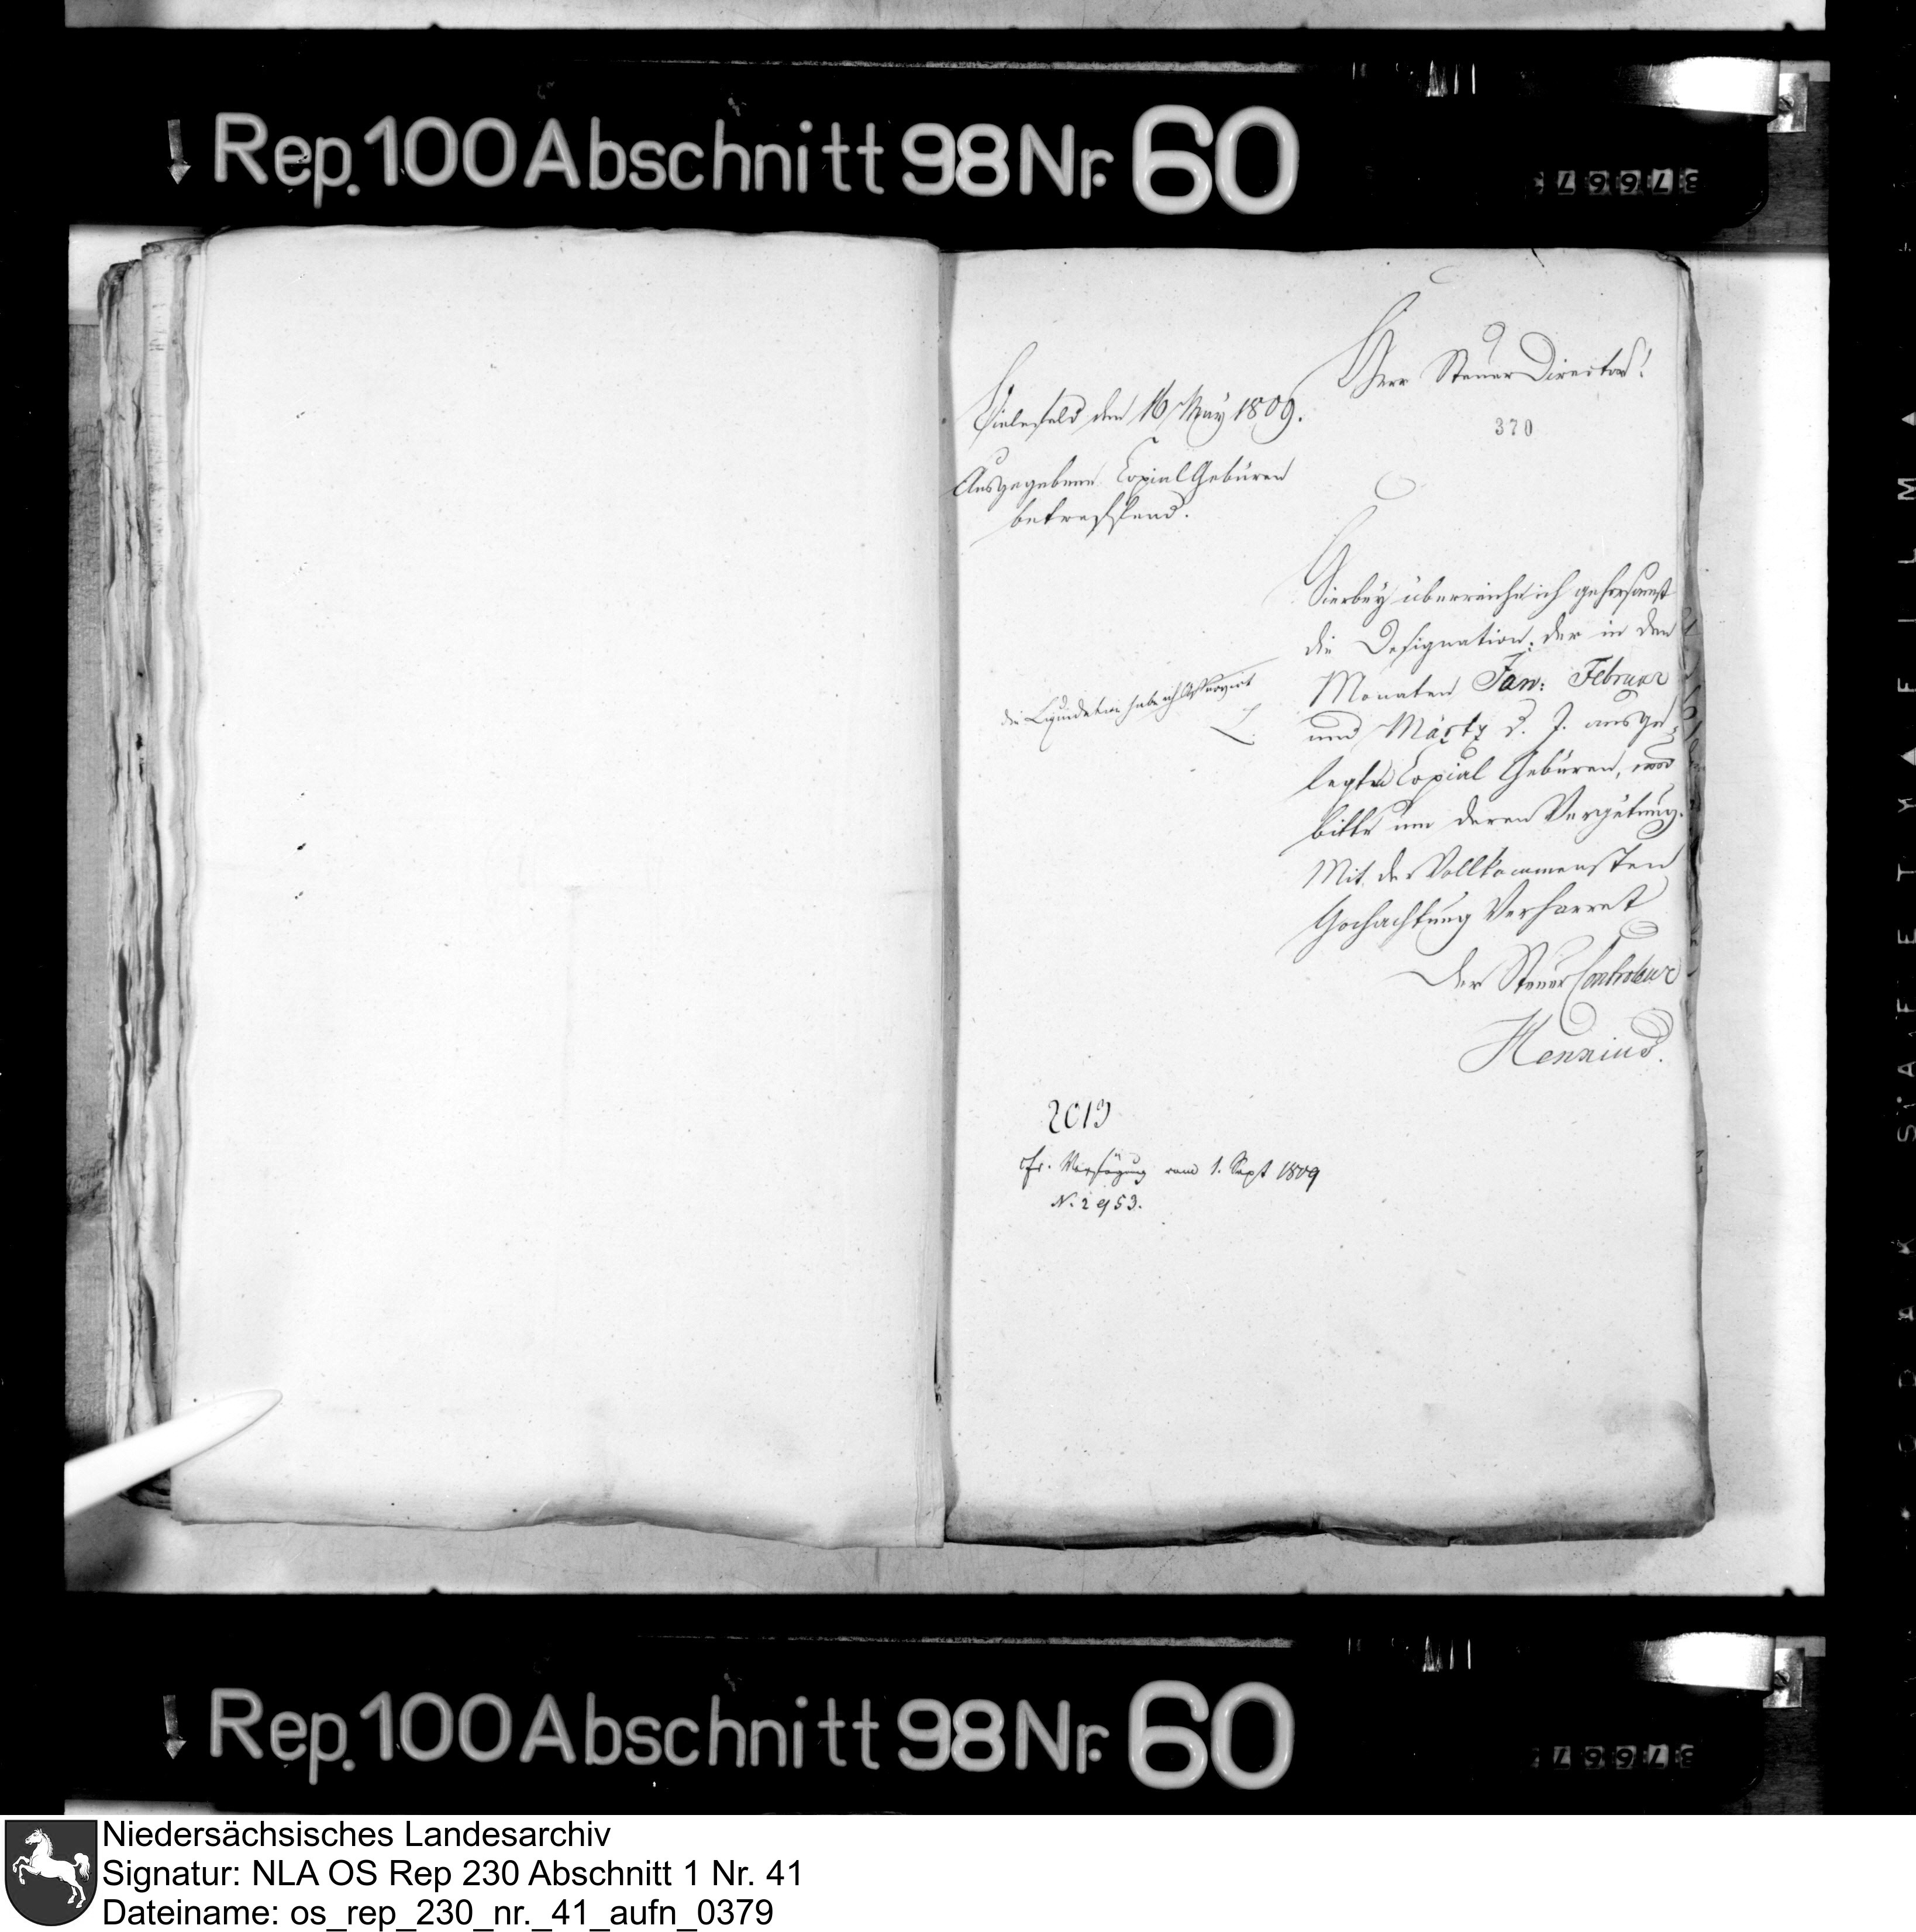 Rep. 100 Abschnitt 98 Nr. 60
Herr Steuer Director!
Bielefeld den 16 May 1809.
370
Ausgegebene Copial Gebüren
betreffend.
Hierbey überreiche ich gehorsamst
die Designation, der in den
Monaten Jan: Februar
und Märtz d. J. ausge-
legten Copial Gebüren, und
bitte um deren Vergütung.
Mit der Vollkommensten
Hochachtung Verharret
der Steuer Controleur
Henrici
die Liquidation habe ich asservirt
2013
cfr. Verfügung vom 1. Sept 1809
N. 2953.
Rep. 100 Abschnitt 98 Nr. 60
Niedersächsisches Landesarchiv
Signatur: NLA OS Rep 230 Abschnitt 1 Nr. 41
Dateiname: os_rep_230_nr._41_aufn_0379